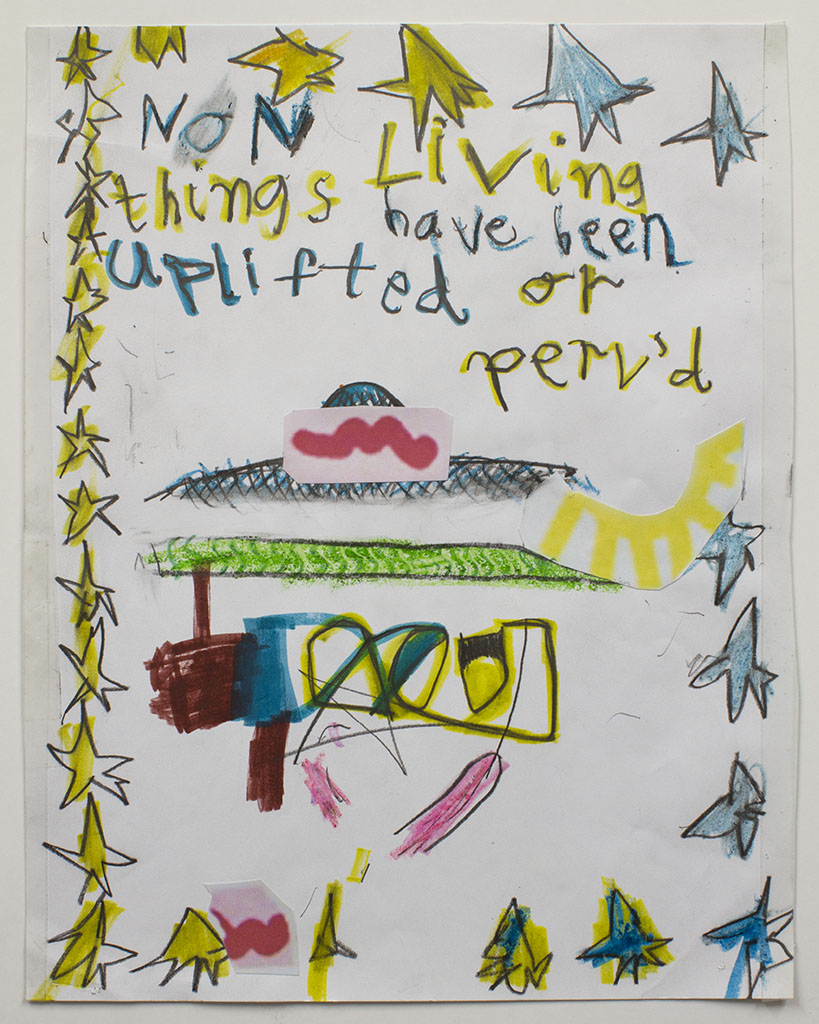 NON Living
things have been
uplifted or
perv'd